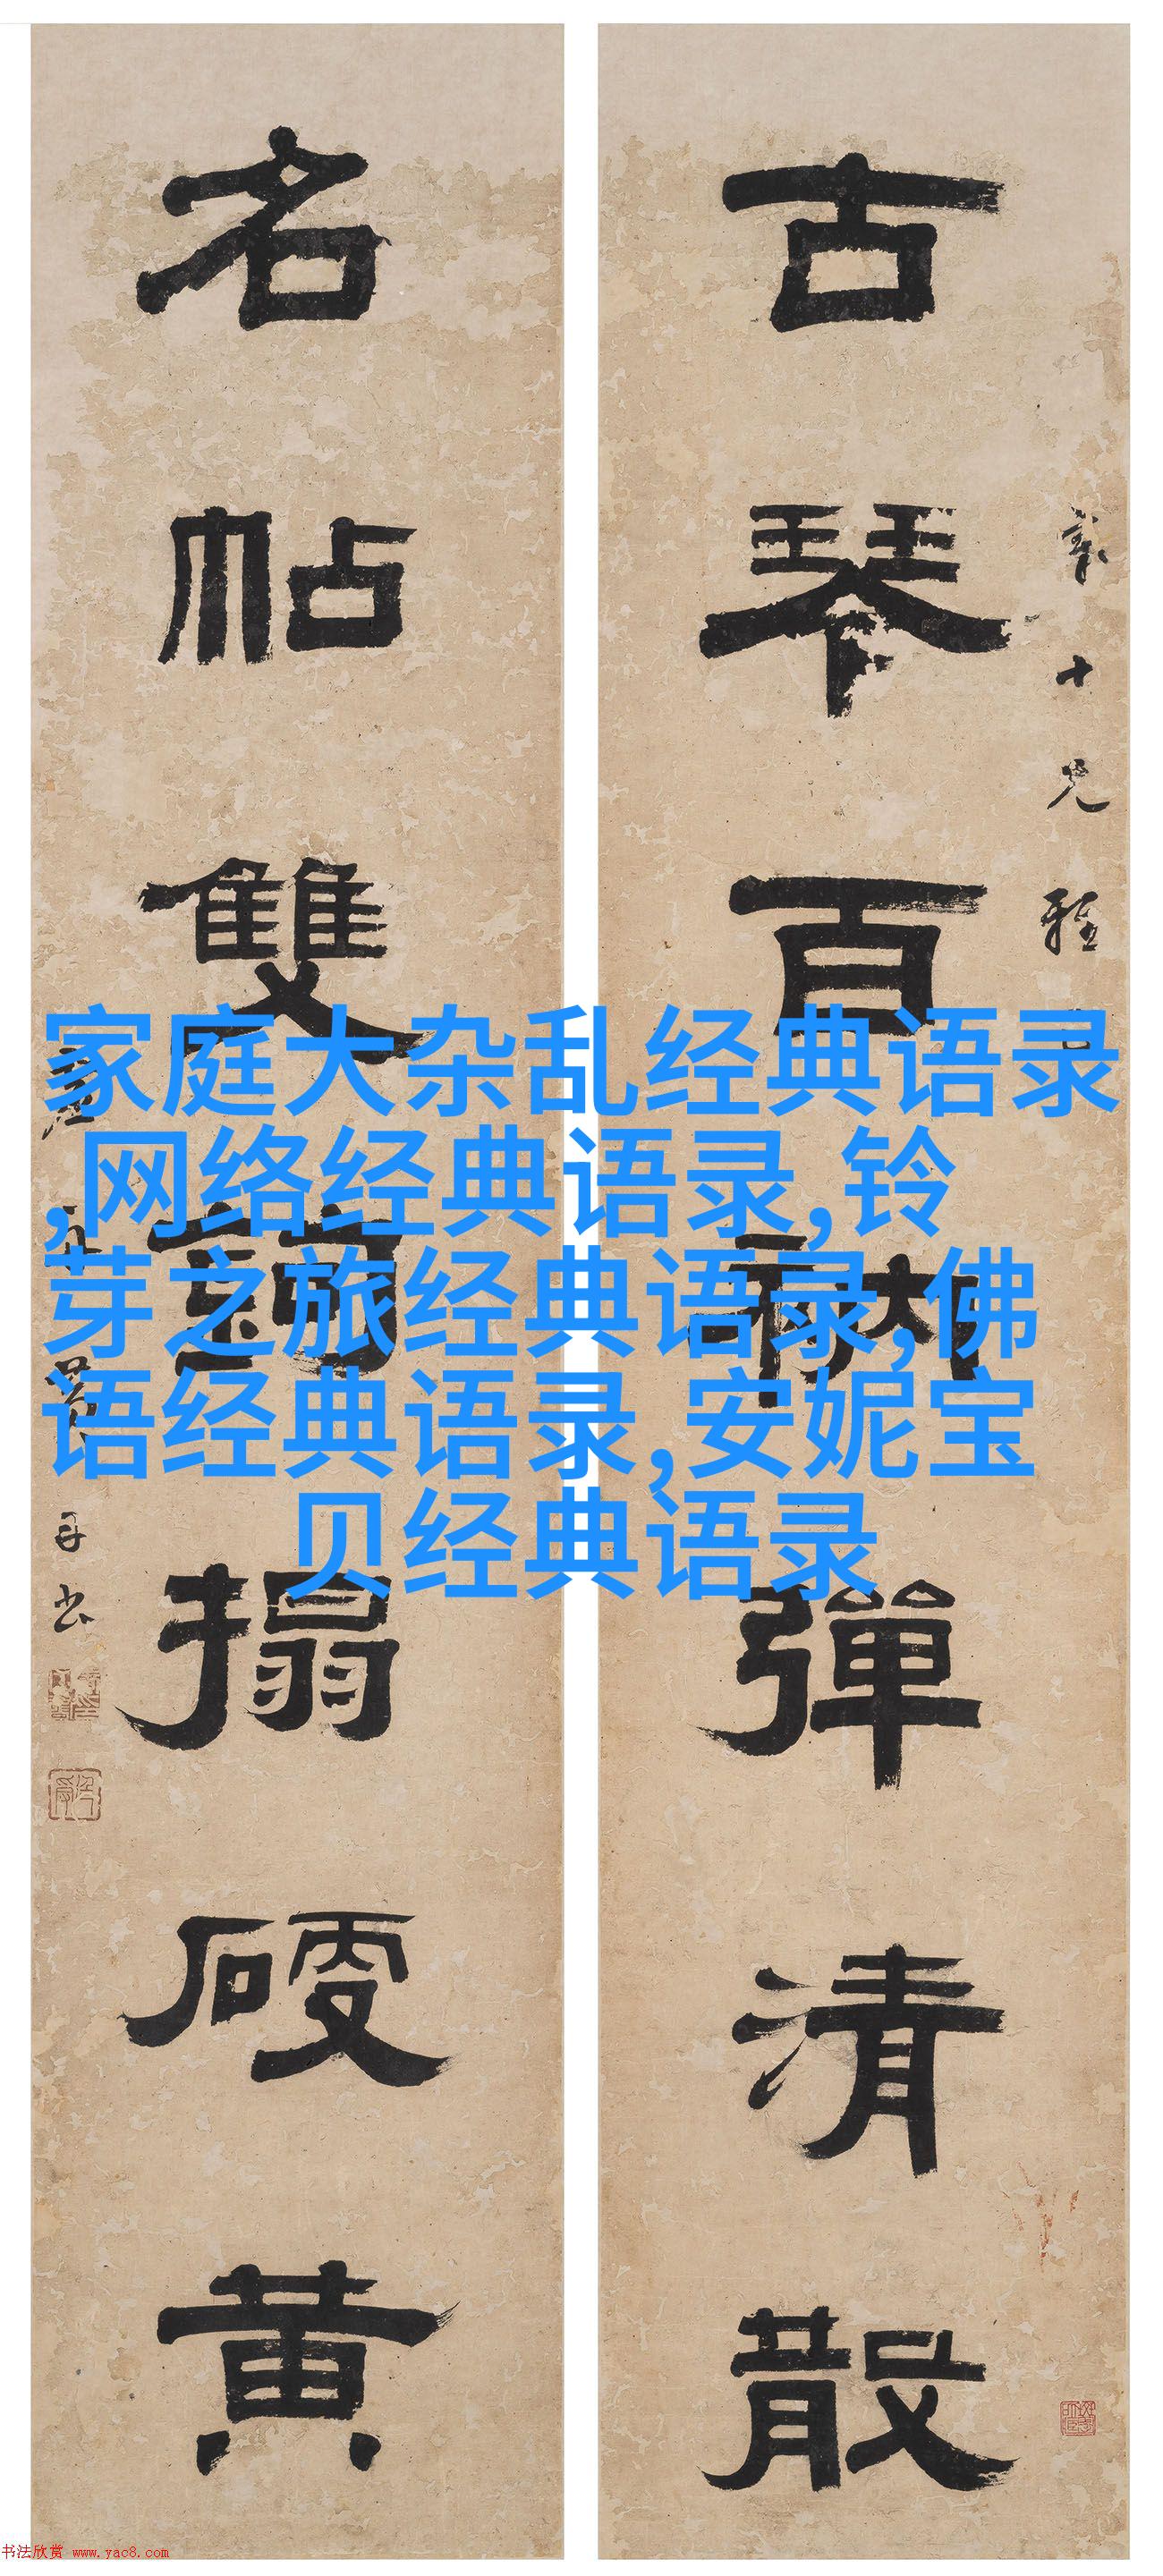 古琴百衲彈清散
名帖雙鉤搨硬黃
十兄雅
弟
手书
家庭大杂乱经典语录
,网络经典语录,铃
芽之旅经典语录,佛
语经典语录,安妮宝
贝经典语录
书法欣赏 www.yac8.com